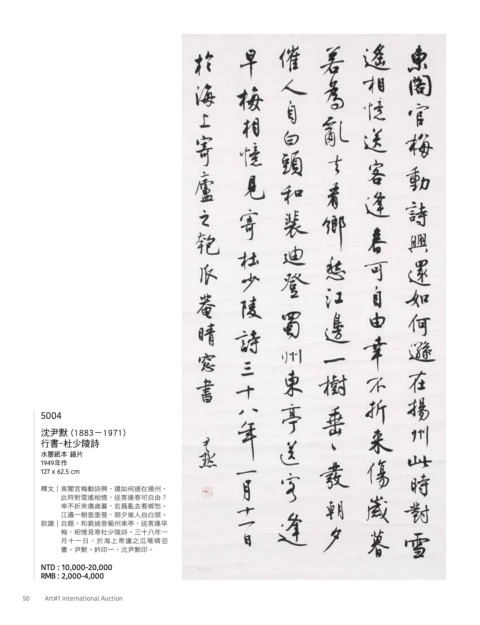 東閣官梅動詩興還如何遜在揚州此時對雪
遙相憶送客逢春可自由幸不折來傷歲暮
若為亂去看鄉愁江邊一樹垂垂發朝夕
催人自白頭和裴迪登蜀州東亭送客逢
早梅相憶見寄杜少陵詩三十八年一月十一日
於海上寄廬之匏瓜菴晴窗書
尹默
5004
沈尹默 (1883－1971)
行書-杜少陵詩
水墨紙本 鏡片
1949年作
127 x 62.5 cm
釋文｜東閣官梅動詩興，還如何遜在揚州。
此時對雪遙相憶，送客逢春可自由？
幸不折來傷歲暮，若爲亂去看鄉愁。
江邊一樹垂垂發，朝夕催人自白頭。
款識｜自題，和裴迪登蜀州東亭，送客逢早
梅，相憶見寄杜少陵詩。三十八年一
月十一日，於海上寄廬之瓜菴晴窗
書。尹默。鈐印一，沈尹默印。
NTD : 10,000-20,000
RMB : 2,000-4,000
50 Art#1 International Auction